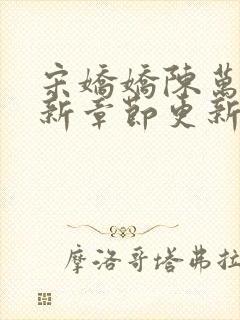 宋嬌嬌陳萬
新章節更新
摩洛哥塔弗拉